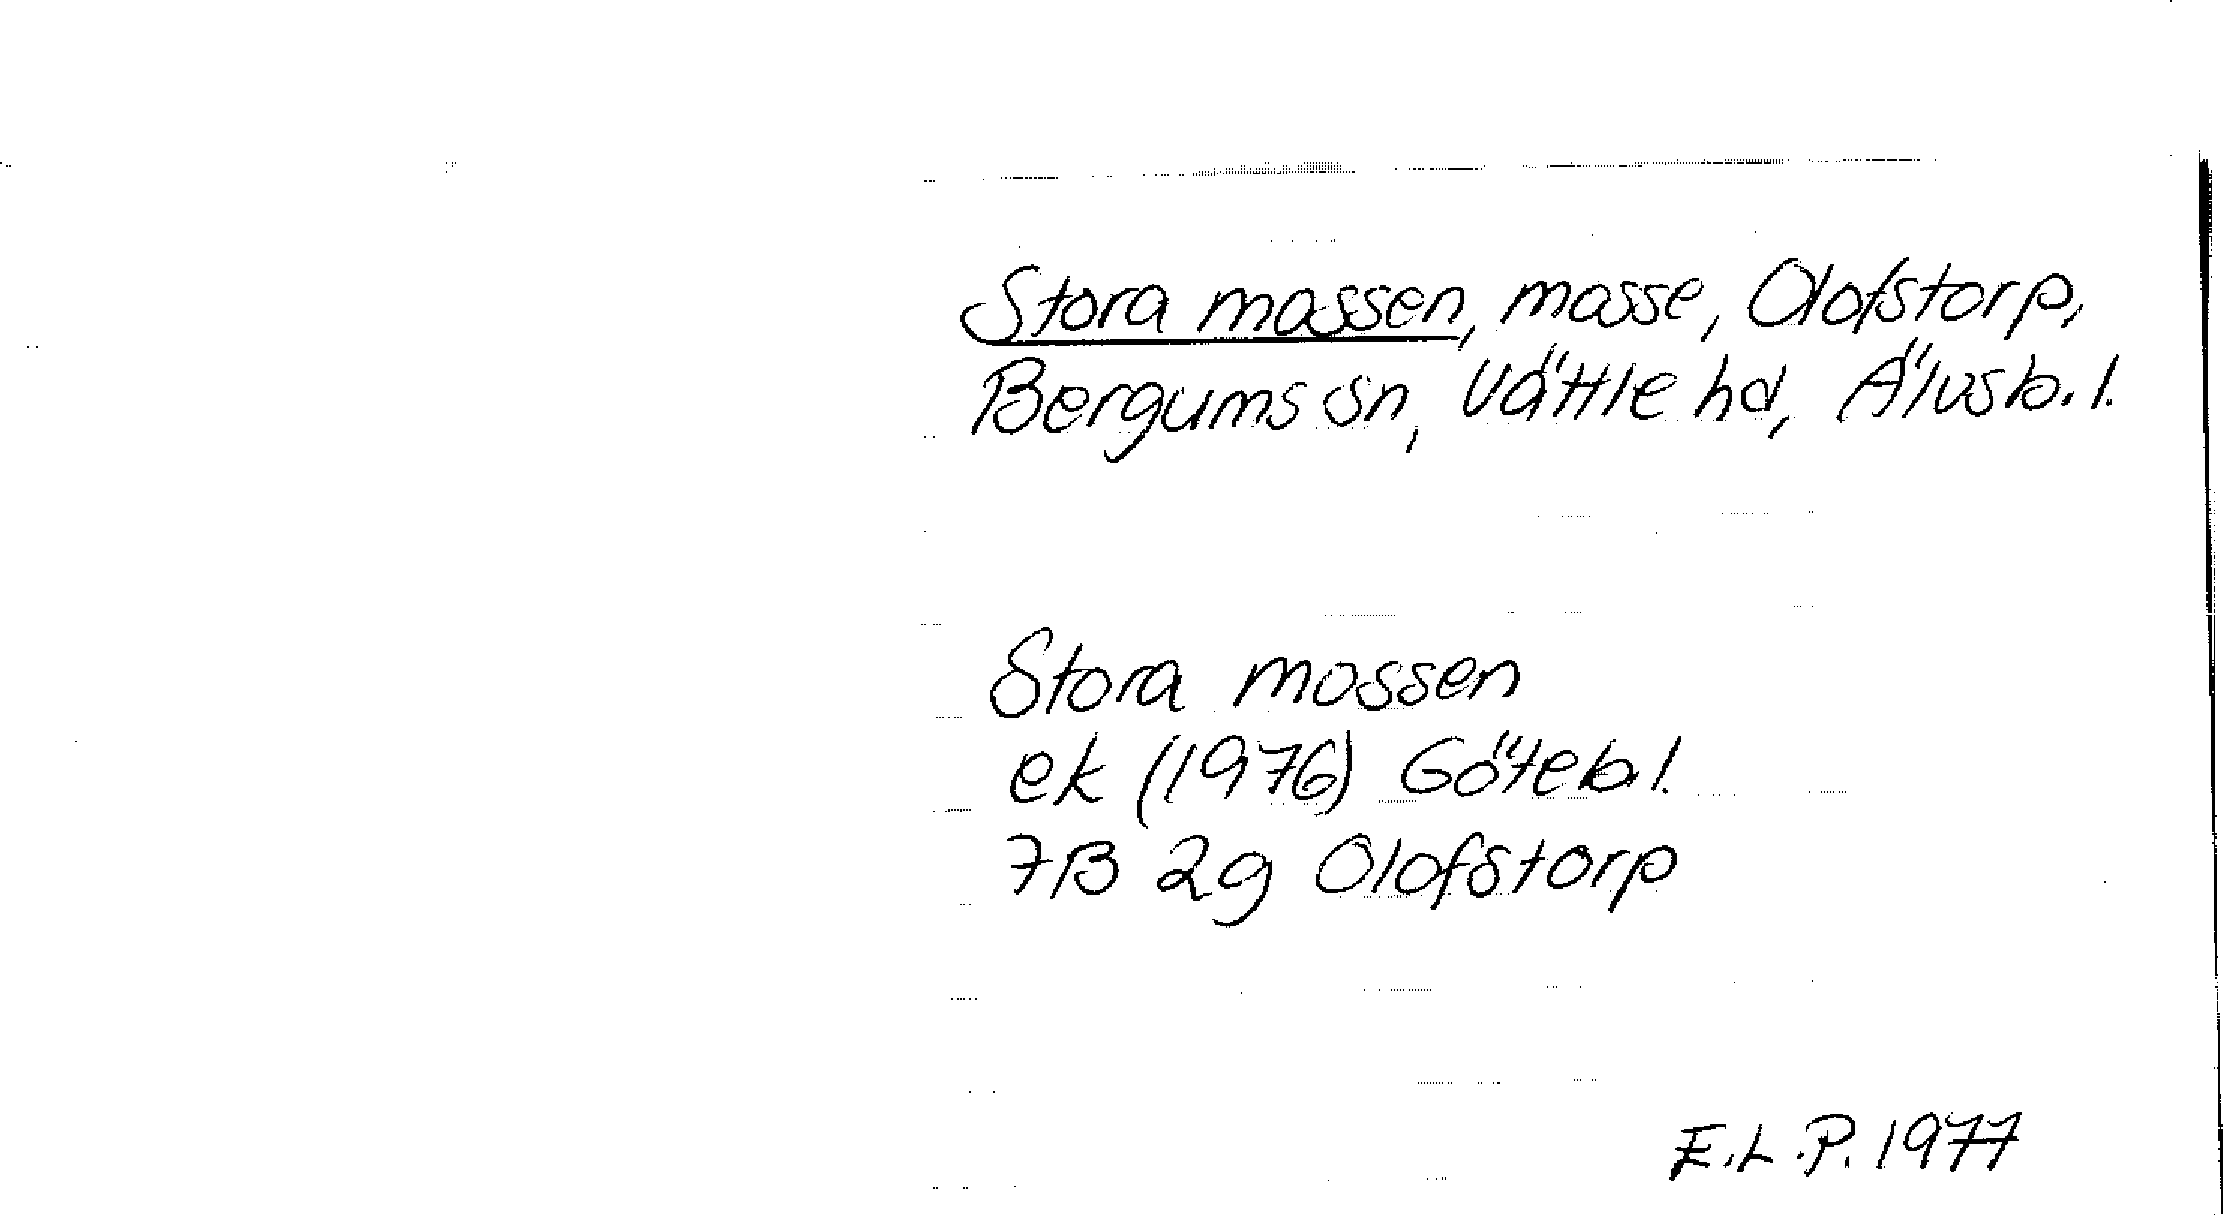 Stora mossen, mosse, Olofstorp,
Bergums sn, Vättle hd, Älvsb. l.
Stora mossen
ek (1976) Göteb. l.
7B 2g Olofstorp
E.L.P. 1977